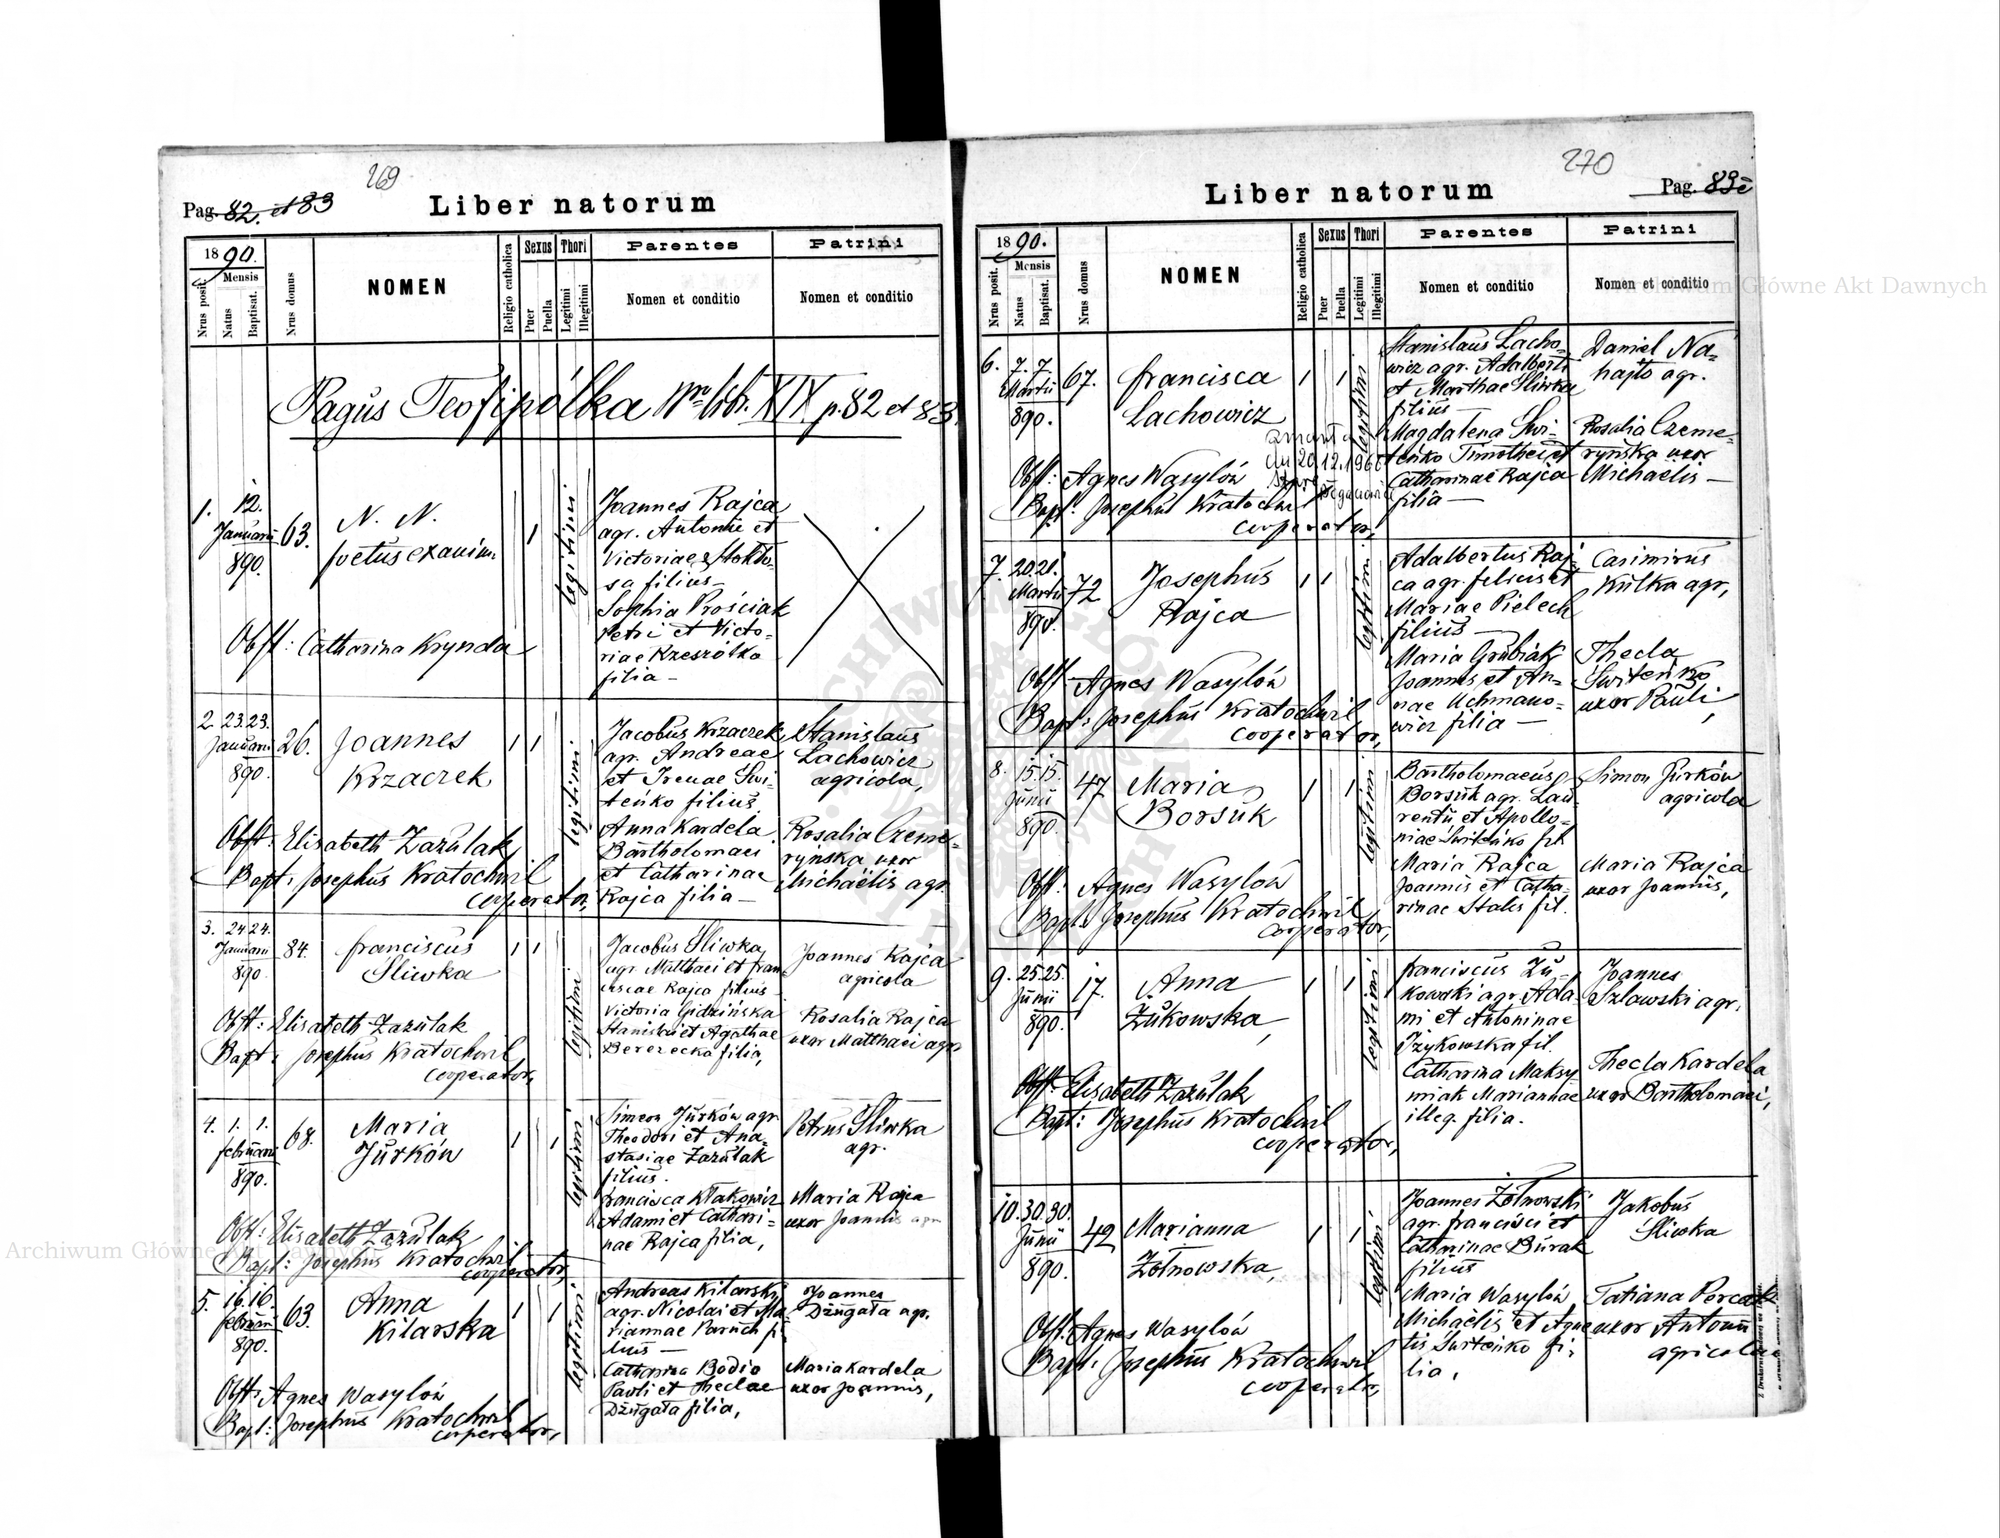 269
Pag. 82. et 83
Liber natorum
1890.
Mensis
Nrus posit.
Natus
Baptisat.
Nrus domus
NOMEN
Religio catholica
Sexus
Puer
Puella
Thori
Legitimi
Illegitimi
Parentes
Nomen et conditio
Patrini
Nomen et conditio
Pagus Teofipólka Nro lib. XIX p. 82 et 83.
1.
12.
Januarii
890.
63.
N. N.
foetus exanim.
1
legitimi
Joannes Rajca
agr. Antonii et
Victoriae Stokło-
sa filius —
Sophia Prościak
Petri et Victo-
riae Rzeszótko
filia —
Obst: Catharina Krynda
2.
23. 23.
Januarii
890.
26.
Joannes
Krzaczek
1 1
legitimi
Jacobus Krzaczek
agr. Andreae
et Irenae Świ-
teńko filius,
Anna Kardela
Bartholomaei
et Catharinae
Rajca filia —
Stanislaus
Lachowicz
agricola,
Rosalia Czeme-
ryńska uxor
Michaëlis agr.
Obst: Elisabeth Zazulak
Bapt: Josephus Kratochwil
cooperator,
3.
24 24.
Januarii
890.
84.
Franciscus
Śliwka
1 1
legitimi
Jacobus Śliwka,
agr. Matthaei et Fran-
ciscae Rajca filius
Victoria Gidzińska
Stanislai et Agathae
Berezecka filia,
Joannes Rajca
agricola
Rosalia Rajca
uxor Matthaei agr.
Obst: Elisabeth Zazulak
Bapt: Josephus Kratochwil
cooperator,
4.
1. 1.
Februarii
890.
68.
Maria
Jurków
1 1
legitimi
Simeon Jurków agr.
Theodori et Ana-
stasiae Zazulak
filius.
Francisca Kłakowicz
Adami et Cathari-
nae Rajca filia,
Petrus Śliwka
agr.
Maria Rajca
uxor Joannis agr
Obst: Elisabeth Zazulak
Bapt: Josephus Kratochwil
cooperator,
5.
16. 16.
Februarii
890.
63.
Anna
Kilarska
1 1
legitimi
Andreas Kilarski
agr. Nicolai et Ma-
riannae Paruch fi-
lius —
Catharina Bodio
Pauli et Theclae
Dżugała filia,
Joannes
Dżugała agr.
Maria Kardela
uxor Joannis,
Obst: Agnes Wasylów
Bapt: Josephus Kratochwil
cooperator,
270
Pag. 83
Liber natorum
1890.
Mensis
Nrus posit.
Natus
Baptisat.
Nrus domus
NOMEN
Religio catholica
Sexus
Puer
Puella
Thori
Legitimi
Illegitimi
Parentes
Nomen et conditio
Patrini
Nomen et conditio
6.
7. 7.
Martii
890.
67.
Francisca
Lachowicz
1 1
legitimi
Stanislaus Lacho-
wicz agr. Adalberti
et Marthae Śliwka
filius —
Magdalena Świ-
teńko Timothei et
Catharinae Rajca
filia —
Daniel Na-
hajło agr.
Rosalia Czeme-
ryńska uxor
Michaëlis —
zmarła
dn 20.12.1966
Obst: Agnes Wasylów
Bapt: Josephus Kratochwil
cooperator,
7.
20. 21.
Martii
890.
72
Josephus
Rajca
1 1
legitimi
Adalbertus Raj-
ca agr. filius et
Mariae Pielech
filius —
Maria Grubiak
Joannis et An-
nae Uchmano-
wicz filia —
Casimirus
Kulka agr,
Thecla
Świteńko
uxor Pauli,
Obst: Agnes Wasylów
Bapt: Josephus Kratochwil
cooperator,
8.
15. 15.
Junii
890.
47
Maria
Borsuk
1 1
legitimi
Bartholomaeus
Borsuk agr. Lau-
rentii et Apollo-
niae Świteńko fil.
Maria Rajca
Joannis et Catha-
rinae Stales fil.
Simon Jurków
agricola
Maria Rajca
uxor Joannis,
Obst: Agnes Wasylów
Bapt: Josephus Kratochwil
cooperator,
9.
25. 25.
Junii
890.
17.
Anna
Żukowska,
1 1
legitimi
Franciscus Żu-
kowski agr. Ada-
mi et Antoninae
Iżykowska fil.
Catharina Maksy-
miak Mariannae
illeg. filia.
Joannes
Szlawski agr.
Thecla Kardela
uxor Bartholomaei,
Obst: Elisabeth Zazulak
Bapt: Josephus Kratochwil
cooperator,
10.
30. 30.
Junii
890.
42
Marianna
Żołnowska,
1 1
legitimi
Joannes Żołnowski
agr. Francisci et
Catharinae Burak
filius
Maria Wasylów
Michaëlis et Agne-
tis Świteńko fi-
lia,
Jakobus
Śliwka
Tatiana Percak
uxor Antonii
agricolae
Obst: Agnes Wasylów
Bapt: Josephus Kratochwil
cooperator,
Archiwum Główne Akt Dawnych
Archiwum Główne Akt Dawnych